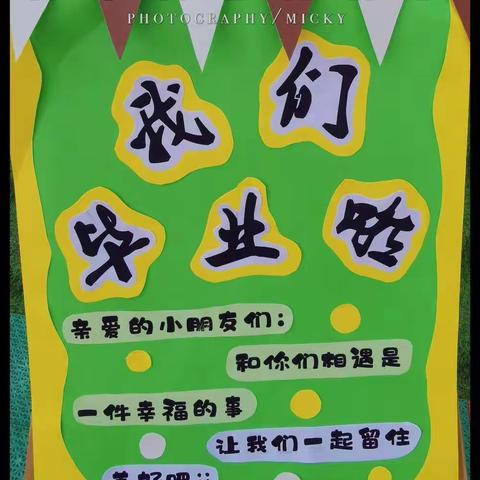 PHOTOGRAPHY/MICKY
我们
毕业啦
亲爱的小朋友们：
和你们相遇是
一件幸福的事
让我们一起留住
美好吧！！